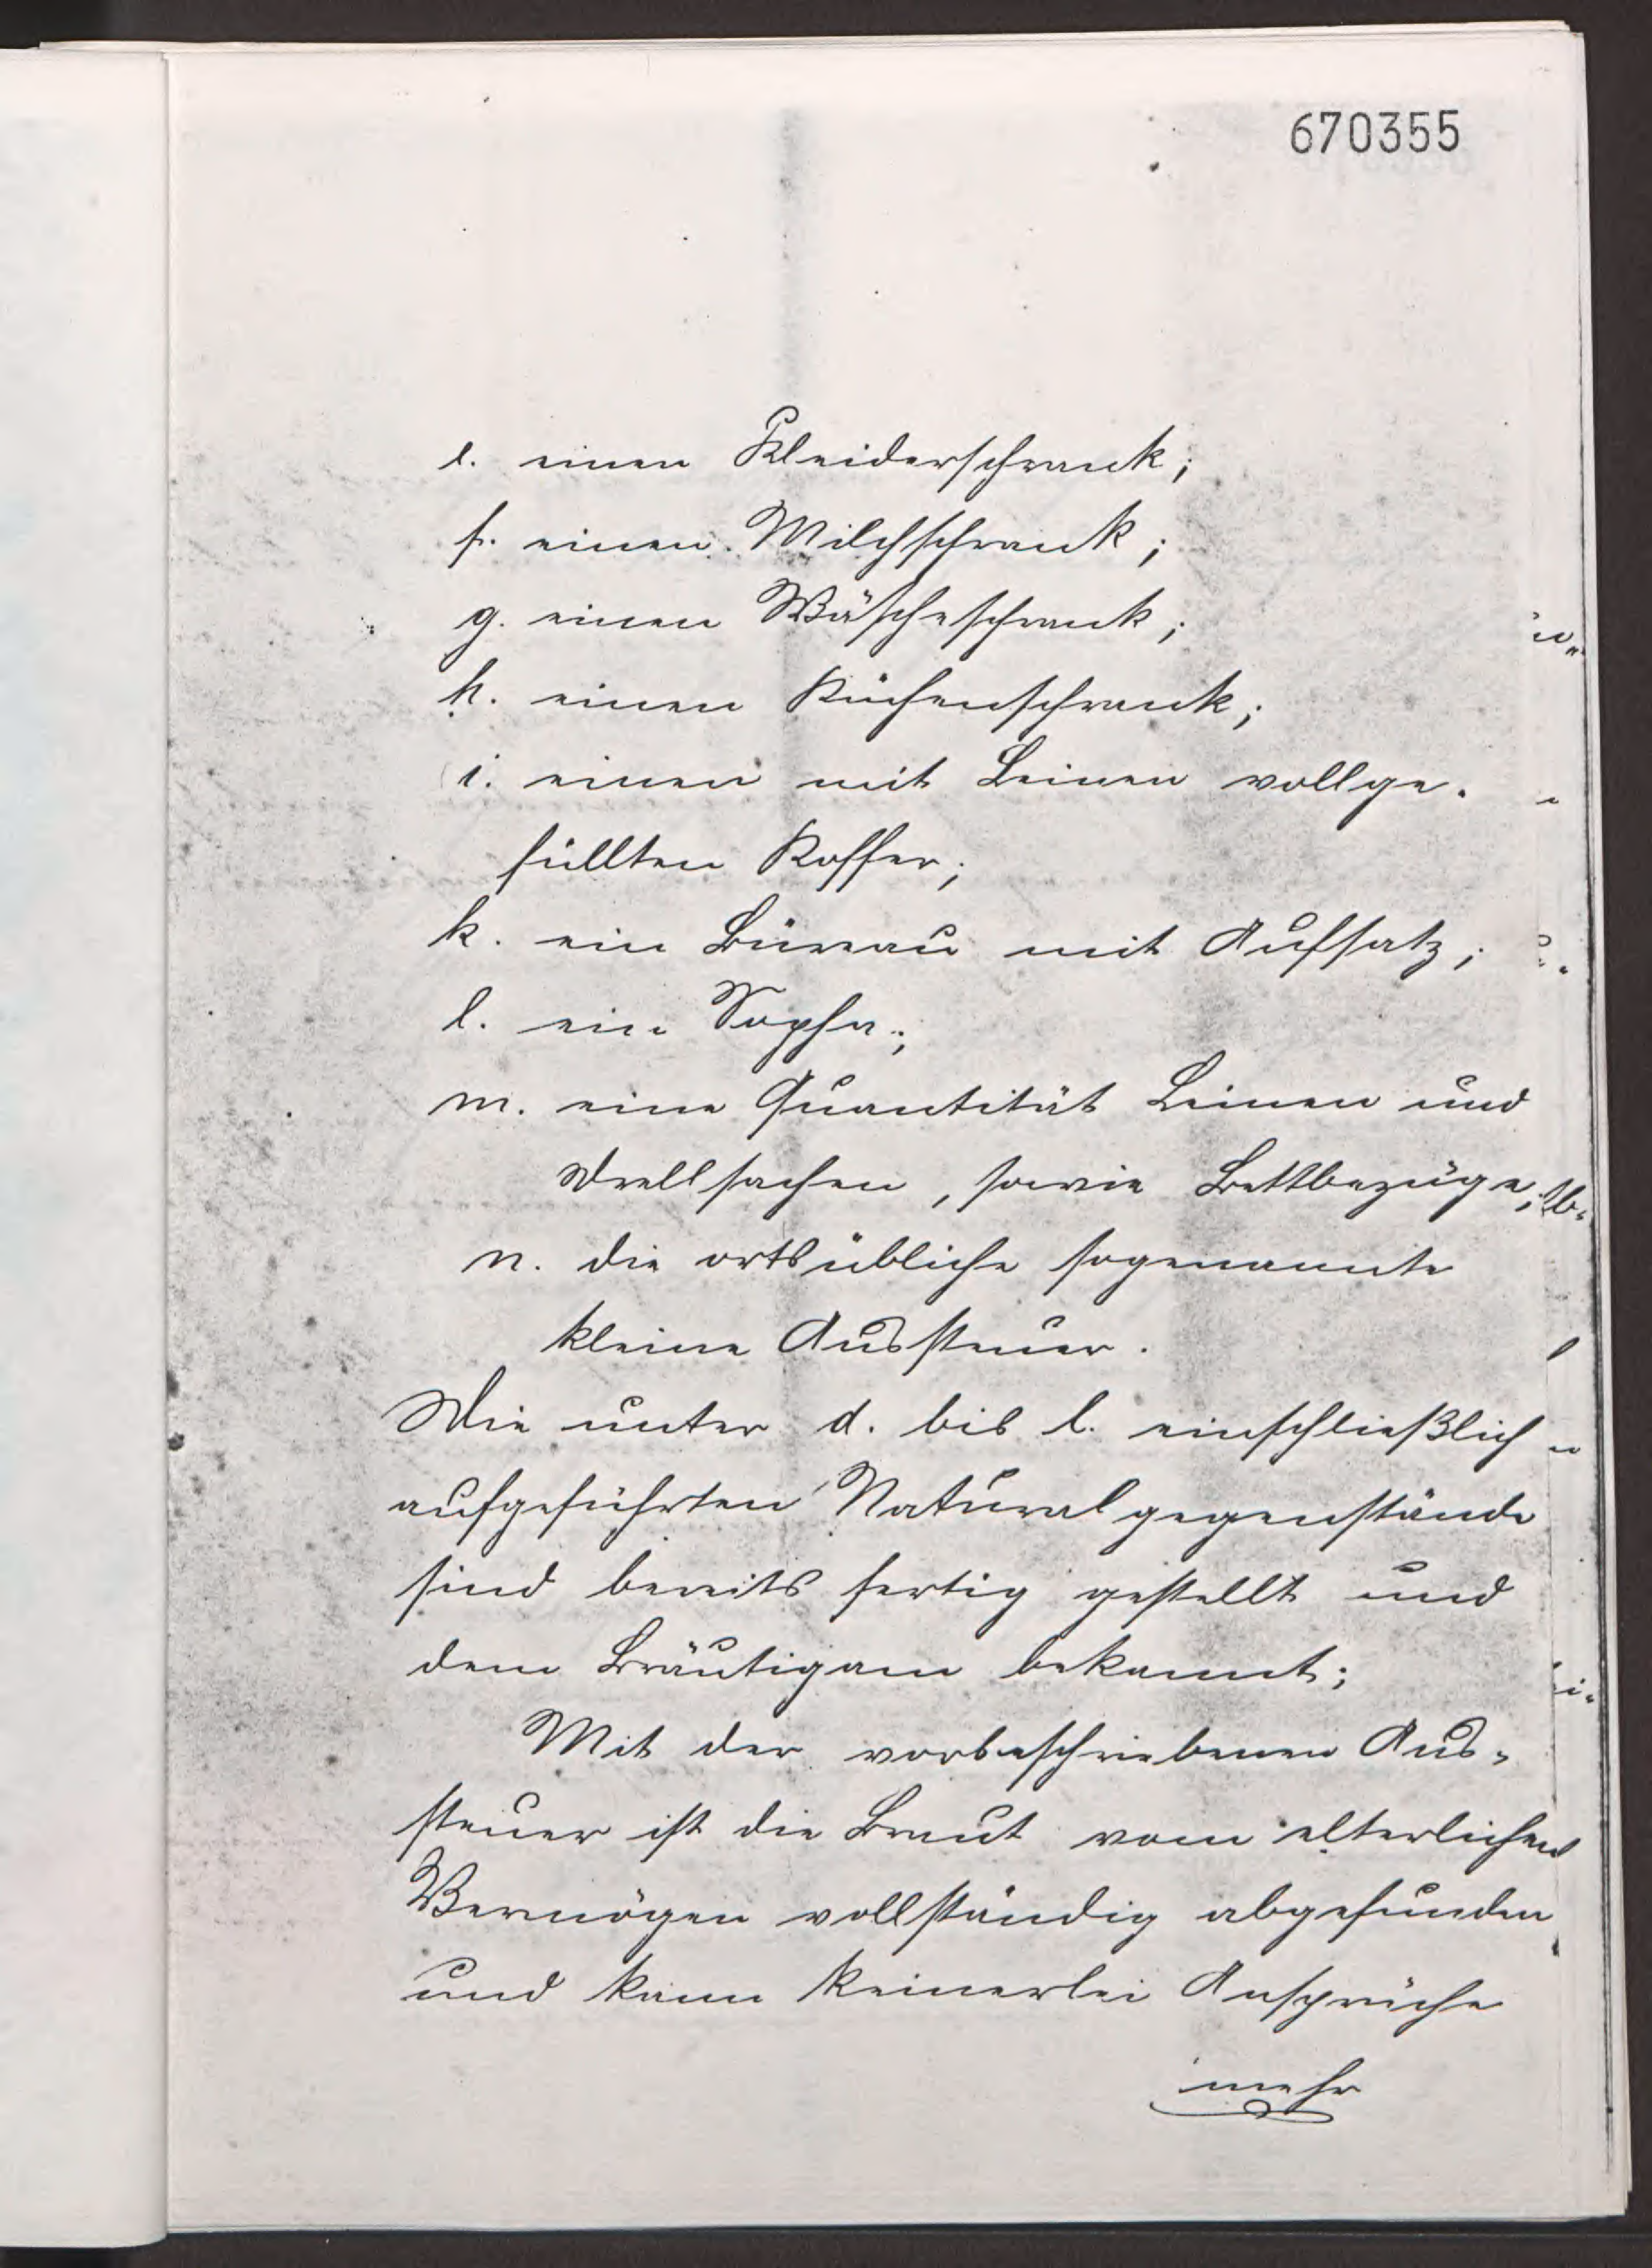 670355
e. einen Kleiderschrank;
f. einen Milchschrank;
g. einen Wäscheschrank;
h. einen Küchenschrank;
i. einen mit Leinen vollge-
füllten Koffer;
k. ein Büreau mit Aufsatz;
l. ein Sopha;
m. eine Quantität Leinen und
Drellsachen, sowie Bettbezüge;
n. die ortsübliche sogenannte
kleine Aussteuer.
Die unter d. bis l. einschließlich
aufgeführten Naturalgegenstände
sind bereits fertig gestellt und
dem Bräutigam bekannt;
Mit der vorbeschriebenen Aus-
steuer ist die Braut vom elterlichen
Vermögen vollständig abgefunden
und kann keinerlei Ansprüche
mehr